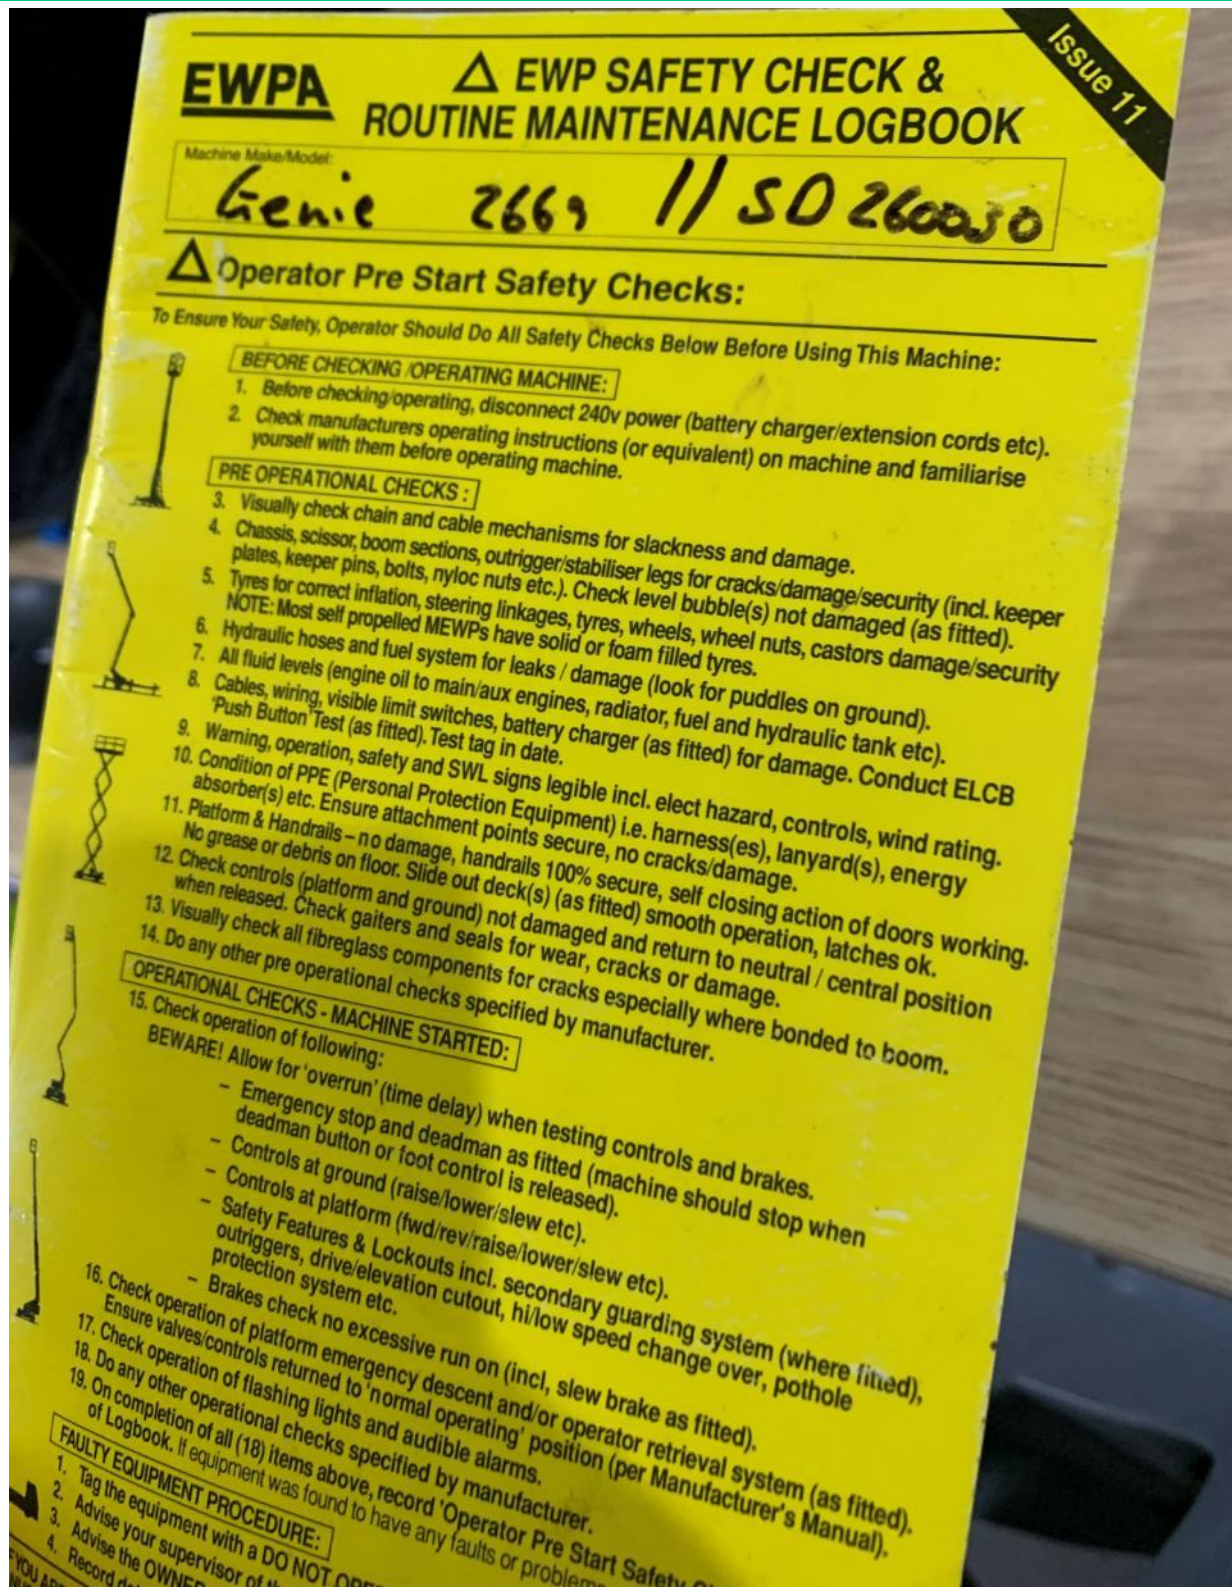 Issue 11
EWPA
EWP SAFETY CHECK &
ROUTINE MAINTENANCE LOGBOOK
Machine Make/Model:
Genie 2669 // SD260030
Operator Pre Start Safety Checks:
To Ensure Your Safety, Operator Should Do All Safety Checks Below Before Using This Machine:
BEFORE CHECKING /OPERATING MACHINE:
1. Before checking/operating, disconnect 240v power (battery charger/extension cords etc).
2. Check manufacturers operating instructions (or equivalent) on machine and familiarise
yourself with them before operating machine.
PRE OPERATIONAL CHECKS :
3. Visually check chain and cable mechanisms for slackness and damage.
4. Chassis, scissor, boom sections, outrigger/stabiliser legs for cracks/damage/security (incl. keeper
plates, keeper pins, bolts, nyloc nuts etc.). Check level bubble(s) not damaged (as fitted).
5. Tyres for correct inflation, steering linkages, tyres, wheels, wheel nuts, castors damage/security
NOTE: Most self propelled MEWPs have solid or foam filled tyres.
6. Hydraulic hoses and fuel system for leaks / damage (look for puddles on ground).
7. All fluid levels (engine oil to main/aux engines, radiator, fuel and hydraulic tank etc).
8. Cables, wiring, visible limit switches, battery charger (as fitted) for damage. Conduct ELCB
'Push Button' Test (as fitted). Test tag in date.
9. Warning, operation, safety and SWL signs legible incl. elect hazard, controls, wind rating.
10. Condition of PPE (Personal Protection Equipment) i.e. harness(es), lanyard(s), energy
absorber(s) etc. Ensure attachment points secure, no cracks/damage.
11. Platform & Handrails – no damage, handrails 100% secure, self closing action of doors working.
No grease or debris on floor. Slide out deck(s) (as fitted) smooth operation, latches ok.
12. Check controls (platform and ground) not damaged and return to neutral / central position
when released. Check gaiters and seals for wear, cracks or damage.
13. Visually check all fibreglass components for cracks especially where bonded to boom.
14. Do any other pre operational checks specified by manufacturer.
OPERATIONAL CHECKS - MACHINE STARTED:
15. Check operation of following:
BEWARE! Allow for 'overrun' (time delay) when testing controls and brakes.
– Emergency stop and deadman as fitted (machine should stop when
deadman button or foot control is released).
– Controls at ground (raise/lower/slew etc).
– Controls at platform (fwd/rev/raise/lower/slew etc).
– Safety Features & Lockouts incl. secondary guarding system (where fitted),
outriggers, drive/elevation cutout, hi/low speed change over, pothole
protection system etc.
– Brakes check no excessive run on (incl, slew brake as fitted).
16. Check operation of platform emergency descent and/or operator retrieval system (as fitted).
Ensure valves/controls returned to 'normal operating' position (per Manufacturer's Manual).
17. Check operation of flashing lights and audible alarms.
18. Do any other operational checks specified by manufacturer.
19. On completion of all (18) items above, record 'Operator Pre Start Safety
of Logbook. If equipment was found to have any faults or problems
FAULTY EQUIPMENT PROCEDURE:
1. Tag the equipment with a DO NOT
2. Advise your supervisor of
3. Advise the OWNER
4. Record